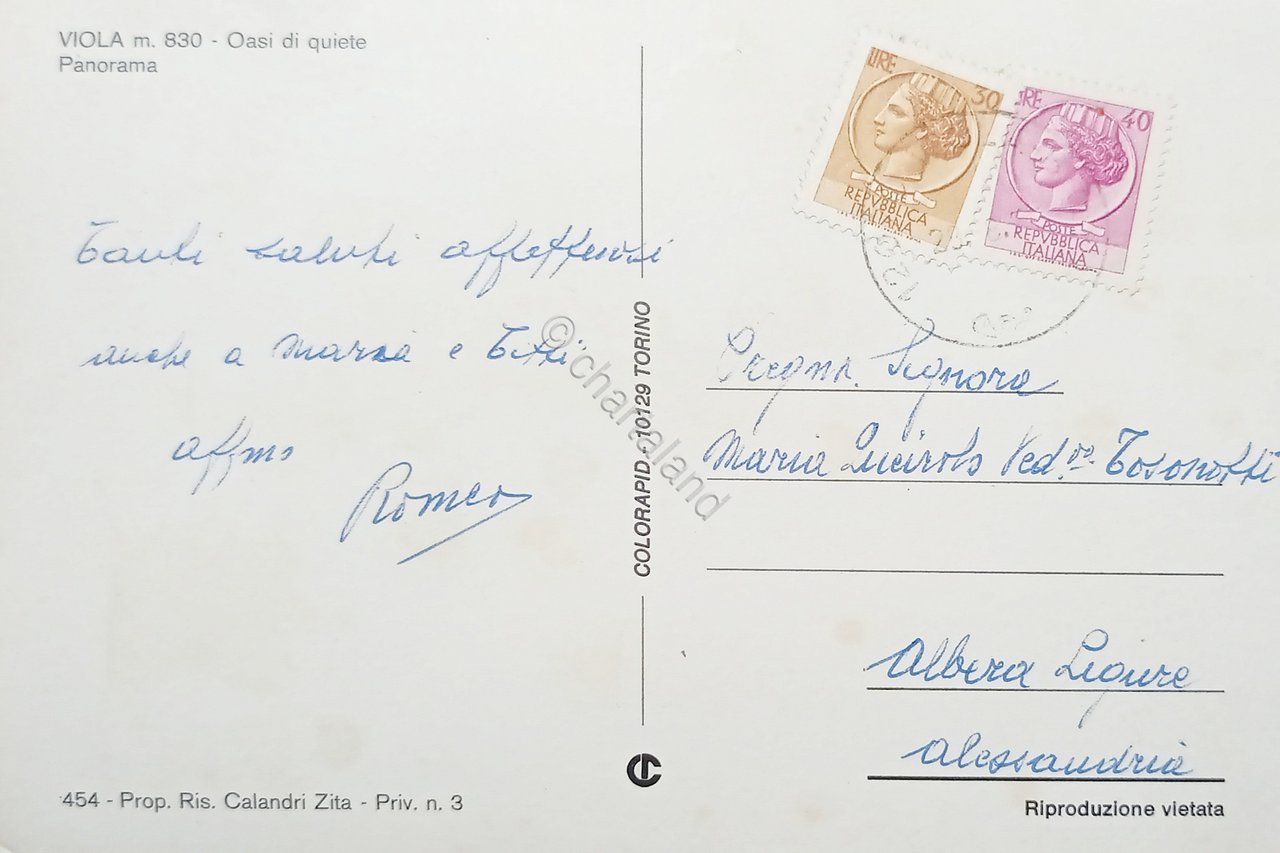 VIOLA m. 830 - Oasi di quiete
Panorama
Tanti saluti affettuosi
anche a Marsa e Titti
affmo
Romeo
454 - Prop. Ris. Calandri Zita - Priv. n. 3
COLORAPID - 10129 TORINO
©chartaland
LIRE 30
POSTE
REPVBBLICA
ITALIANA
IRE 40
POSTE
REPVBBLICA
ITALIANA
Pregma. Signora
Maria Queirolo Ved.va Tosonotti
Albera Ligure
Alessandria
Riproduzione vietata